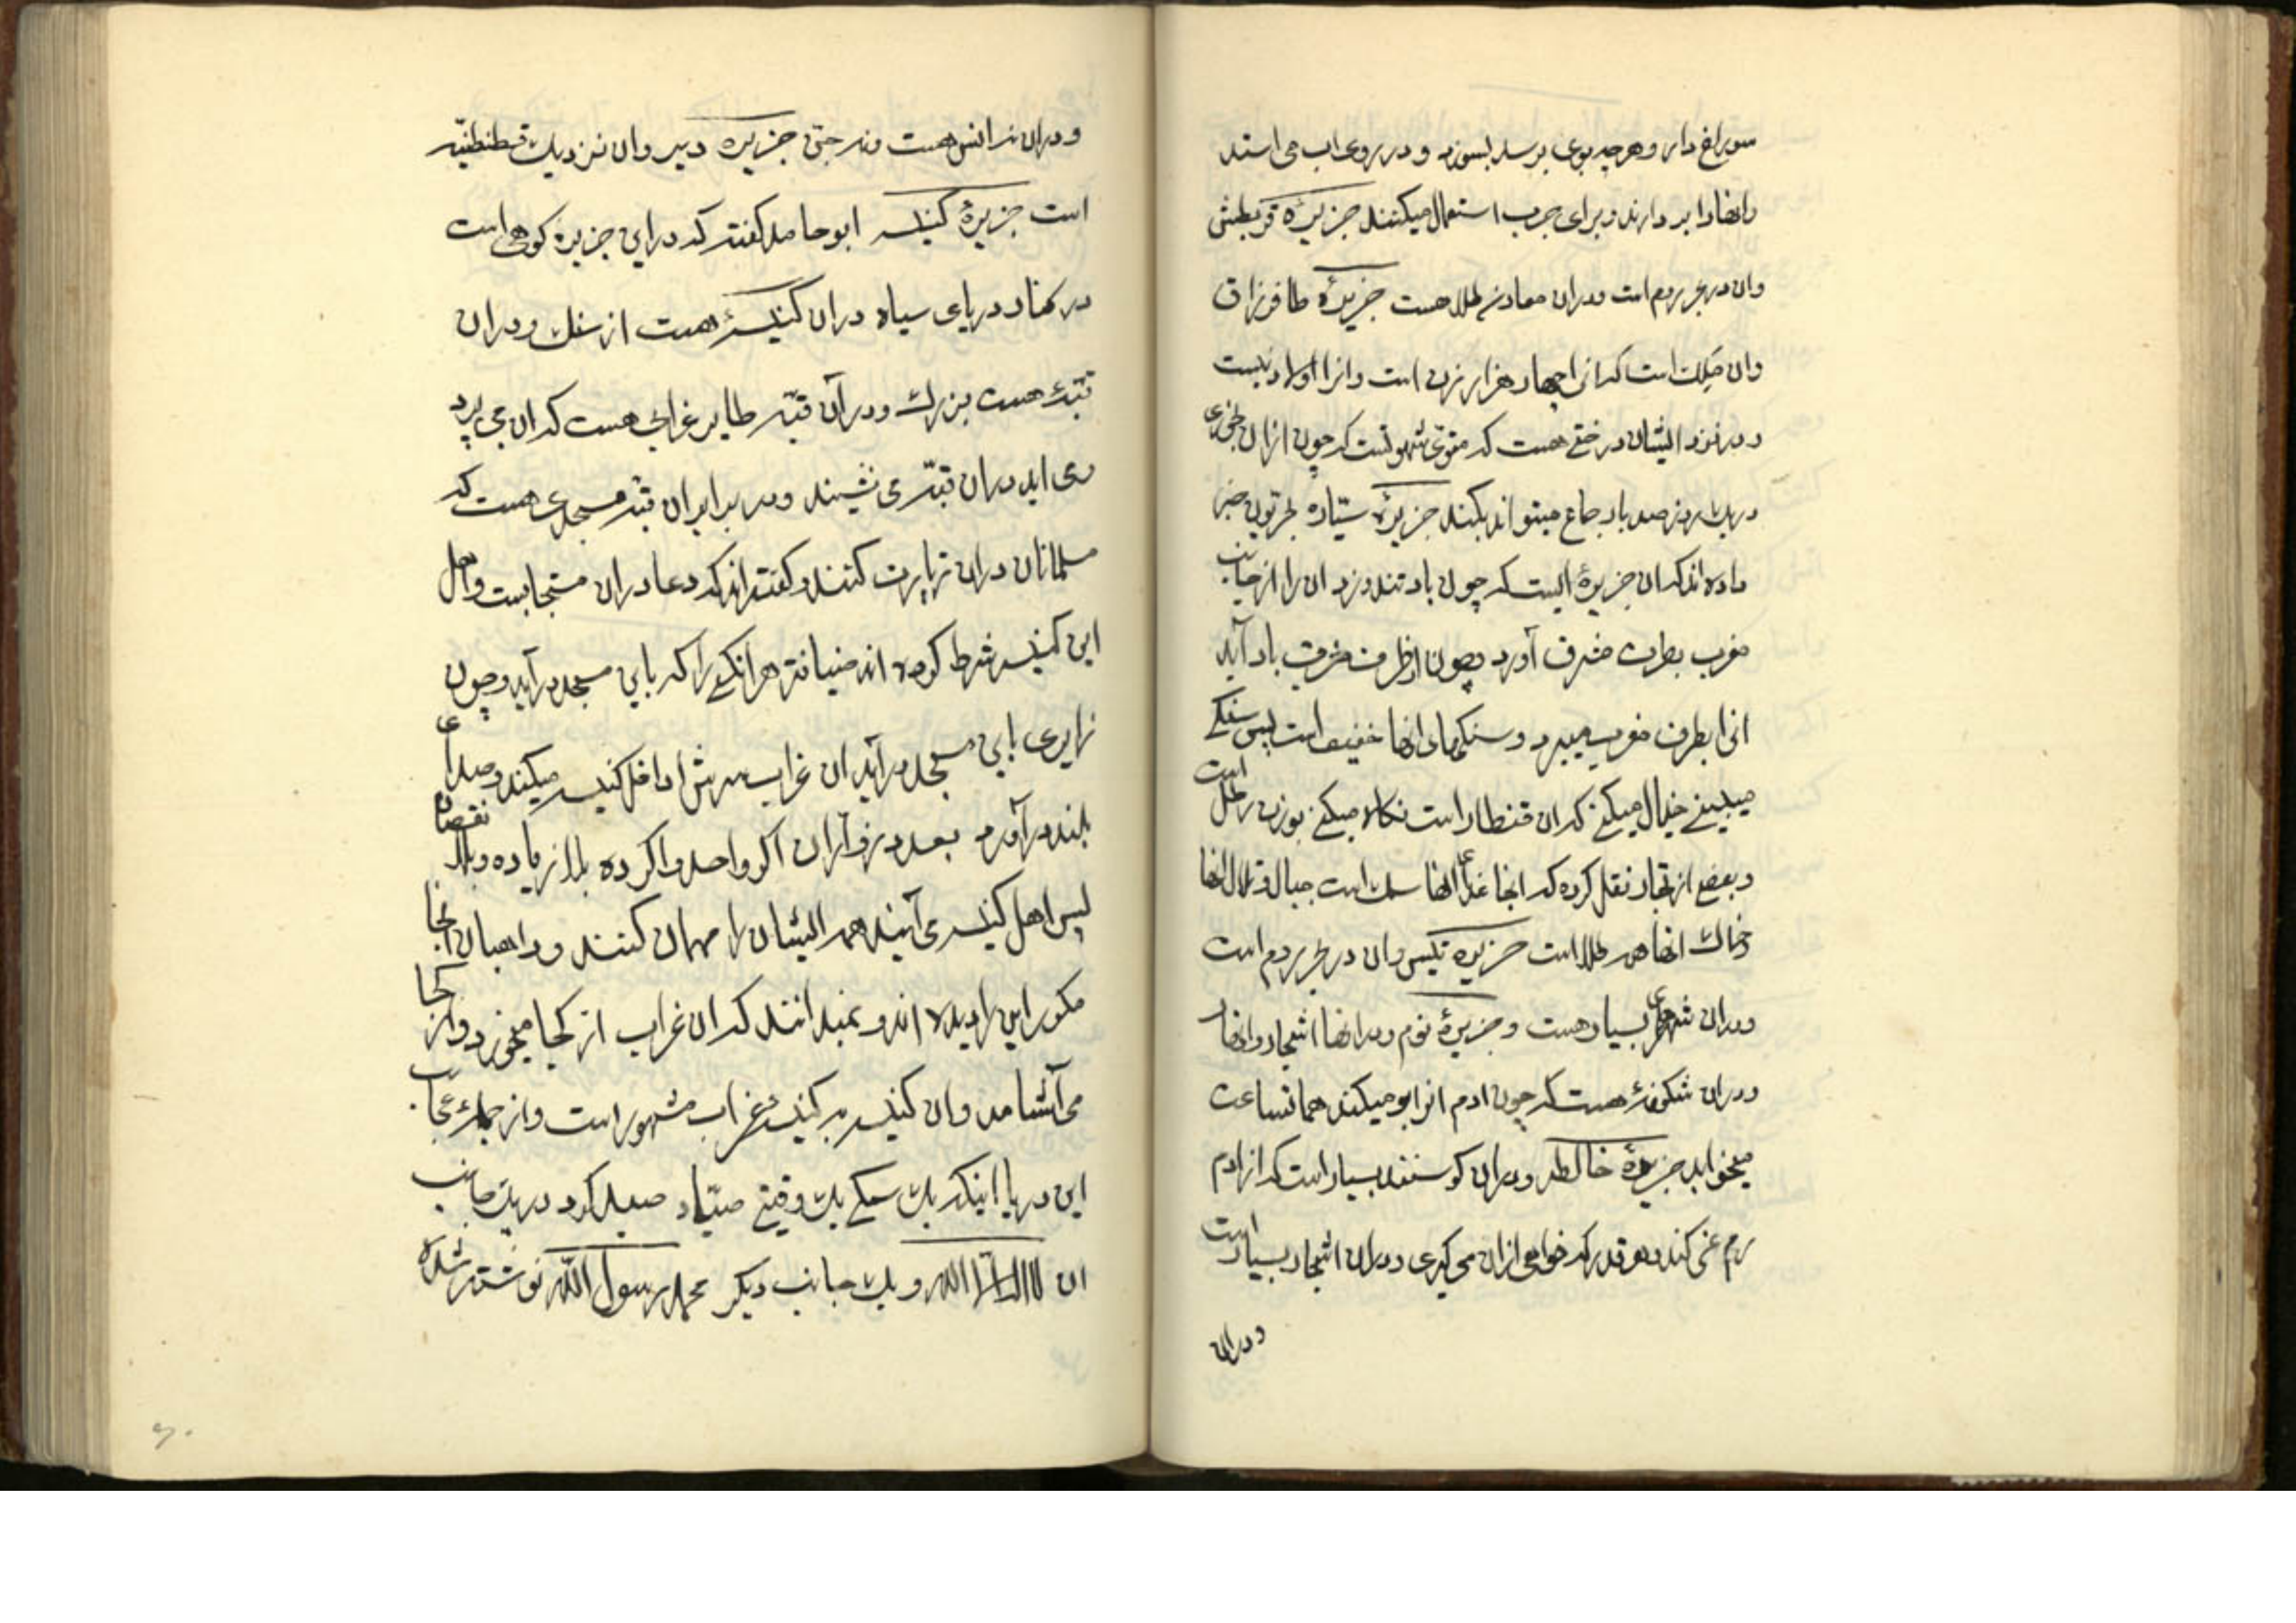 سوراخ دار و هرچه بوی برسد بسوزد و در روی اب می استد
وانها را بر دارند و برای جرب استعمال میکنند جزیرهٔ قریطش
وان در بحر روم است و دران معادن طلا هست جزیرهٔ
وان مملکت است که انرا چهار هزار زن است وانرا اولاد نیست
و در نزد ایشان درختی هست که مقوی شهوتست که چون ازان بخوری
در یک روز صد بار جماع میتواند بکند جزیرهٔ سیّاره بحریون خبر
داده اند که ان جزیرهٔ ایست که چون باد تند وزد ان را از جانب
مغرب بطرف مشرق آورد و چون از طرف مشرق باد آید
انرا بطرف مغرب میبرد و سنکهای انها خفیف است پس سنکی
میبینی خیال میکنی که ان قنطار است نکاه میکنی بوزن رطل است
و بعضی از تجار نقل کرده که انجا غذای انها سمک است جبال و تلال انها
و خاک انها همه طلا است جزیره تکیس وان در بحر روم است
و دران شهرهای بسیار هست و جزیرهٔ نوم و در انها اشجار و انهار
و دران شکوفهٔ هست که چون ادم انرا بو میکند همانساعت
میخوابد جزیرهٔ خالطه و دران کوسفند بسیار است که از ادم
رم نمی کند و هر قدر که خواهی ازان می کیری و دران اشجار بسیار است
و دران
و دران نه انس هست و نه جنّ جزیره دیر وان نزدیک قسطنطنیّه
است جزیرهٔ کنیسه ابو حامد کفته که در این جزیره کوهی است
در کنار دریای سیاه دران کنیسهٔ هست از سنک و دران
قبّهٔ هست بزرک و در آن قبّه طایر غرابی هست که ان می پرد
و می اید دران قبّه می نشیند و در برابر ان قبّه مسجدی هست که
مسلمانان دران زیارت کنند و کفته اند که دعا دران مستجابست و اهل
این کنیسه شرط کرده اند ضیافت هر انکسی را که باین مسجد در آید و چون
زایری باین مسجد در آید ان غراب سرش را داخل کنیسه میکند و صدای
بلند در آورد بعدد زوّار ان اکر واحد واکر ده بلا زیاده و بلا نقصان
پس اهل کنیسه می آیند همه ایشان را مهمان کنند و راهبان انجا
مکرر این را دیده اند و نمیدانند که ان غراب از کجا میخورد و از کجا
می آشامد وان کنیسه به کنیسهٔ غراب مشهور است و از جملهٔ عجایب
این دریا اینکه یک سمکی یک وقتی صیّاد صید کرد در یک جانب
ان لا اله الا الله و یک جانب دیکر محمد رسول الله نوشته شده